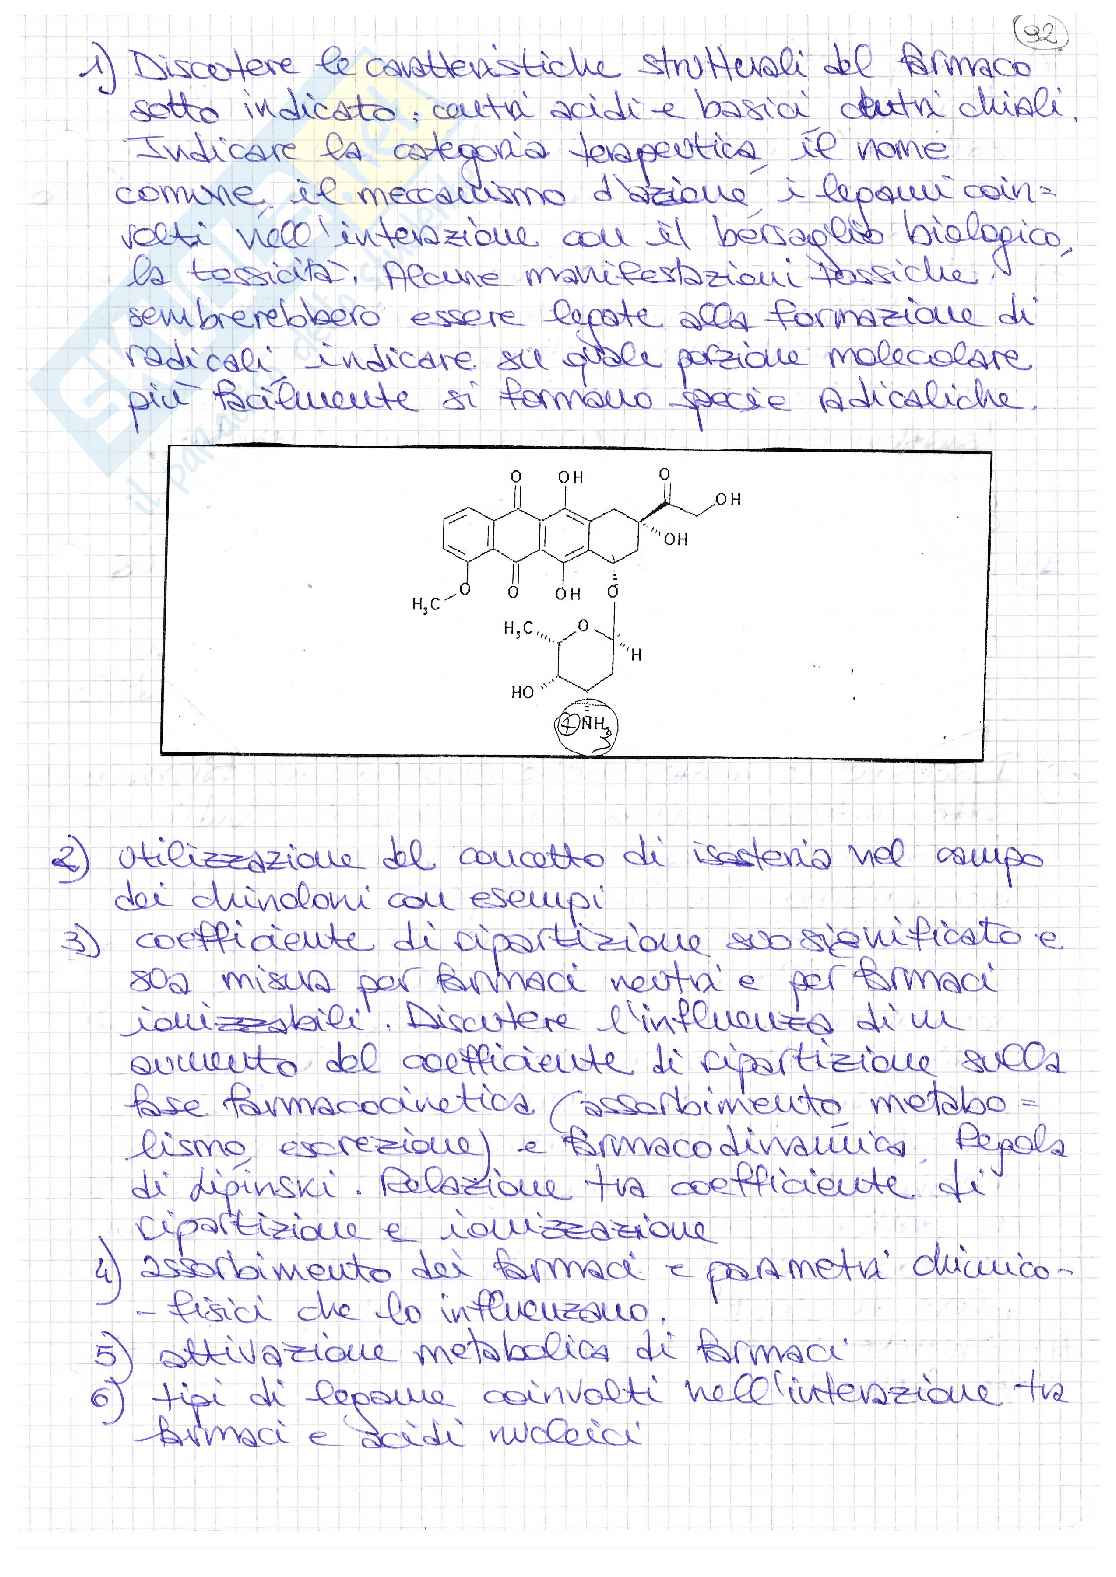 92
1) Discutere le caratteristiche strutturali del farmaco
sotto indicato: centri acidi e basici, centri chirali.
Indicare la categoria terapeutica, il nome
comune, il meccanismo d'azione, i legami coin=
volti nell'interazione con il bersaglio biologico,
la tossicità. Alcune manifestazioni tossiche
sembrerebbero essere legate alla formazione di
radicali, indicare su quale porzione molecolare
più facilmente si formano specie radicaliche.
O OH O OH
OH
H₃C O O OH O
H₃C O H
HO
+ NH₃
2) Utilizzazione del concetto di isosteria nel campo
dei chinoloni con esempi
3) coefficiente di ripartizione suo significato e
sua misura per farmaci neutri e per farmaci
ionizzabili. Discutere l'influenza di un
aumento del coefficiente di ripartizione sulla
fase farmacocinetica (assorbimento, metabo=
lismo, escrezione) e farmacodinamica. Regola
di Lipinski. Relazione tra coefficiente di
ripartizione e ionizzazione
4) assorbimento dei farmaci e parametri chimico-
-fisici che lo influenzano.
5) attivazione metabolica di farmaci
6) tipi di legame coinvolti nell'interazione tra
farmaci e acidi nucleici